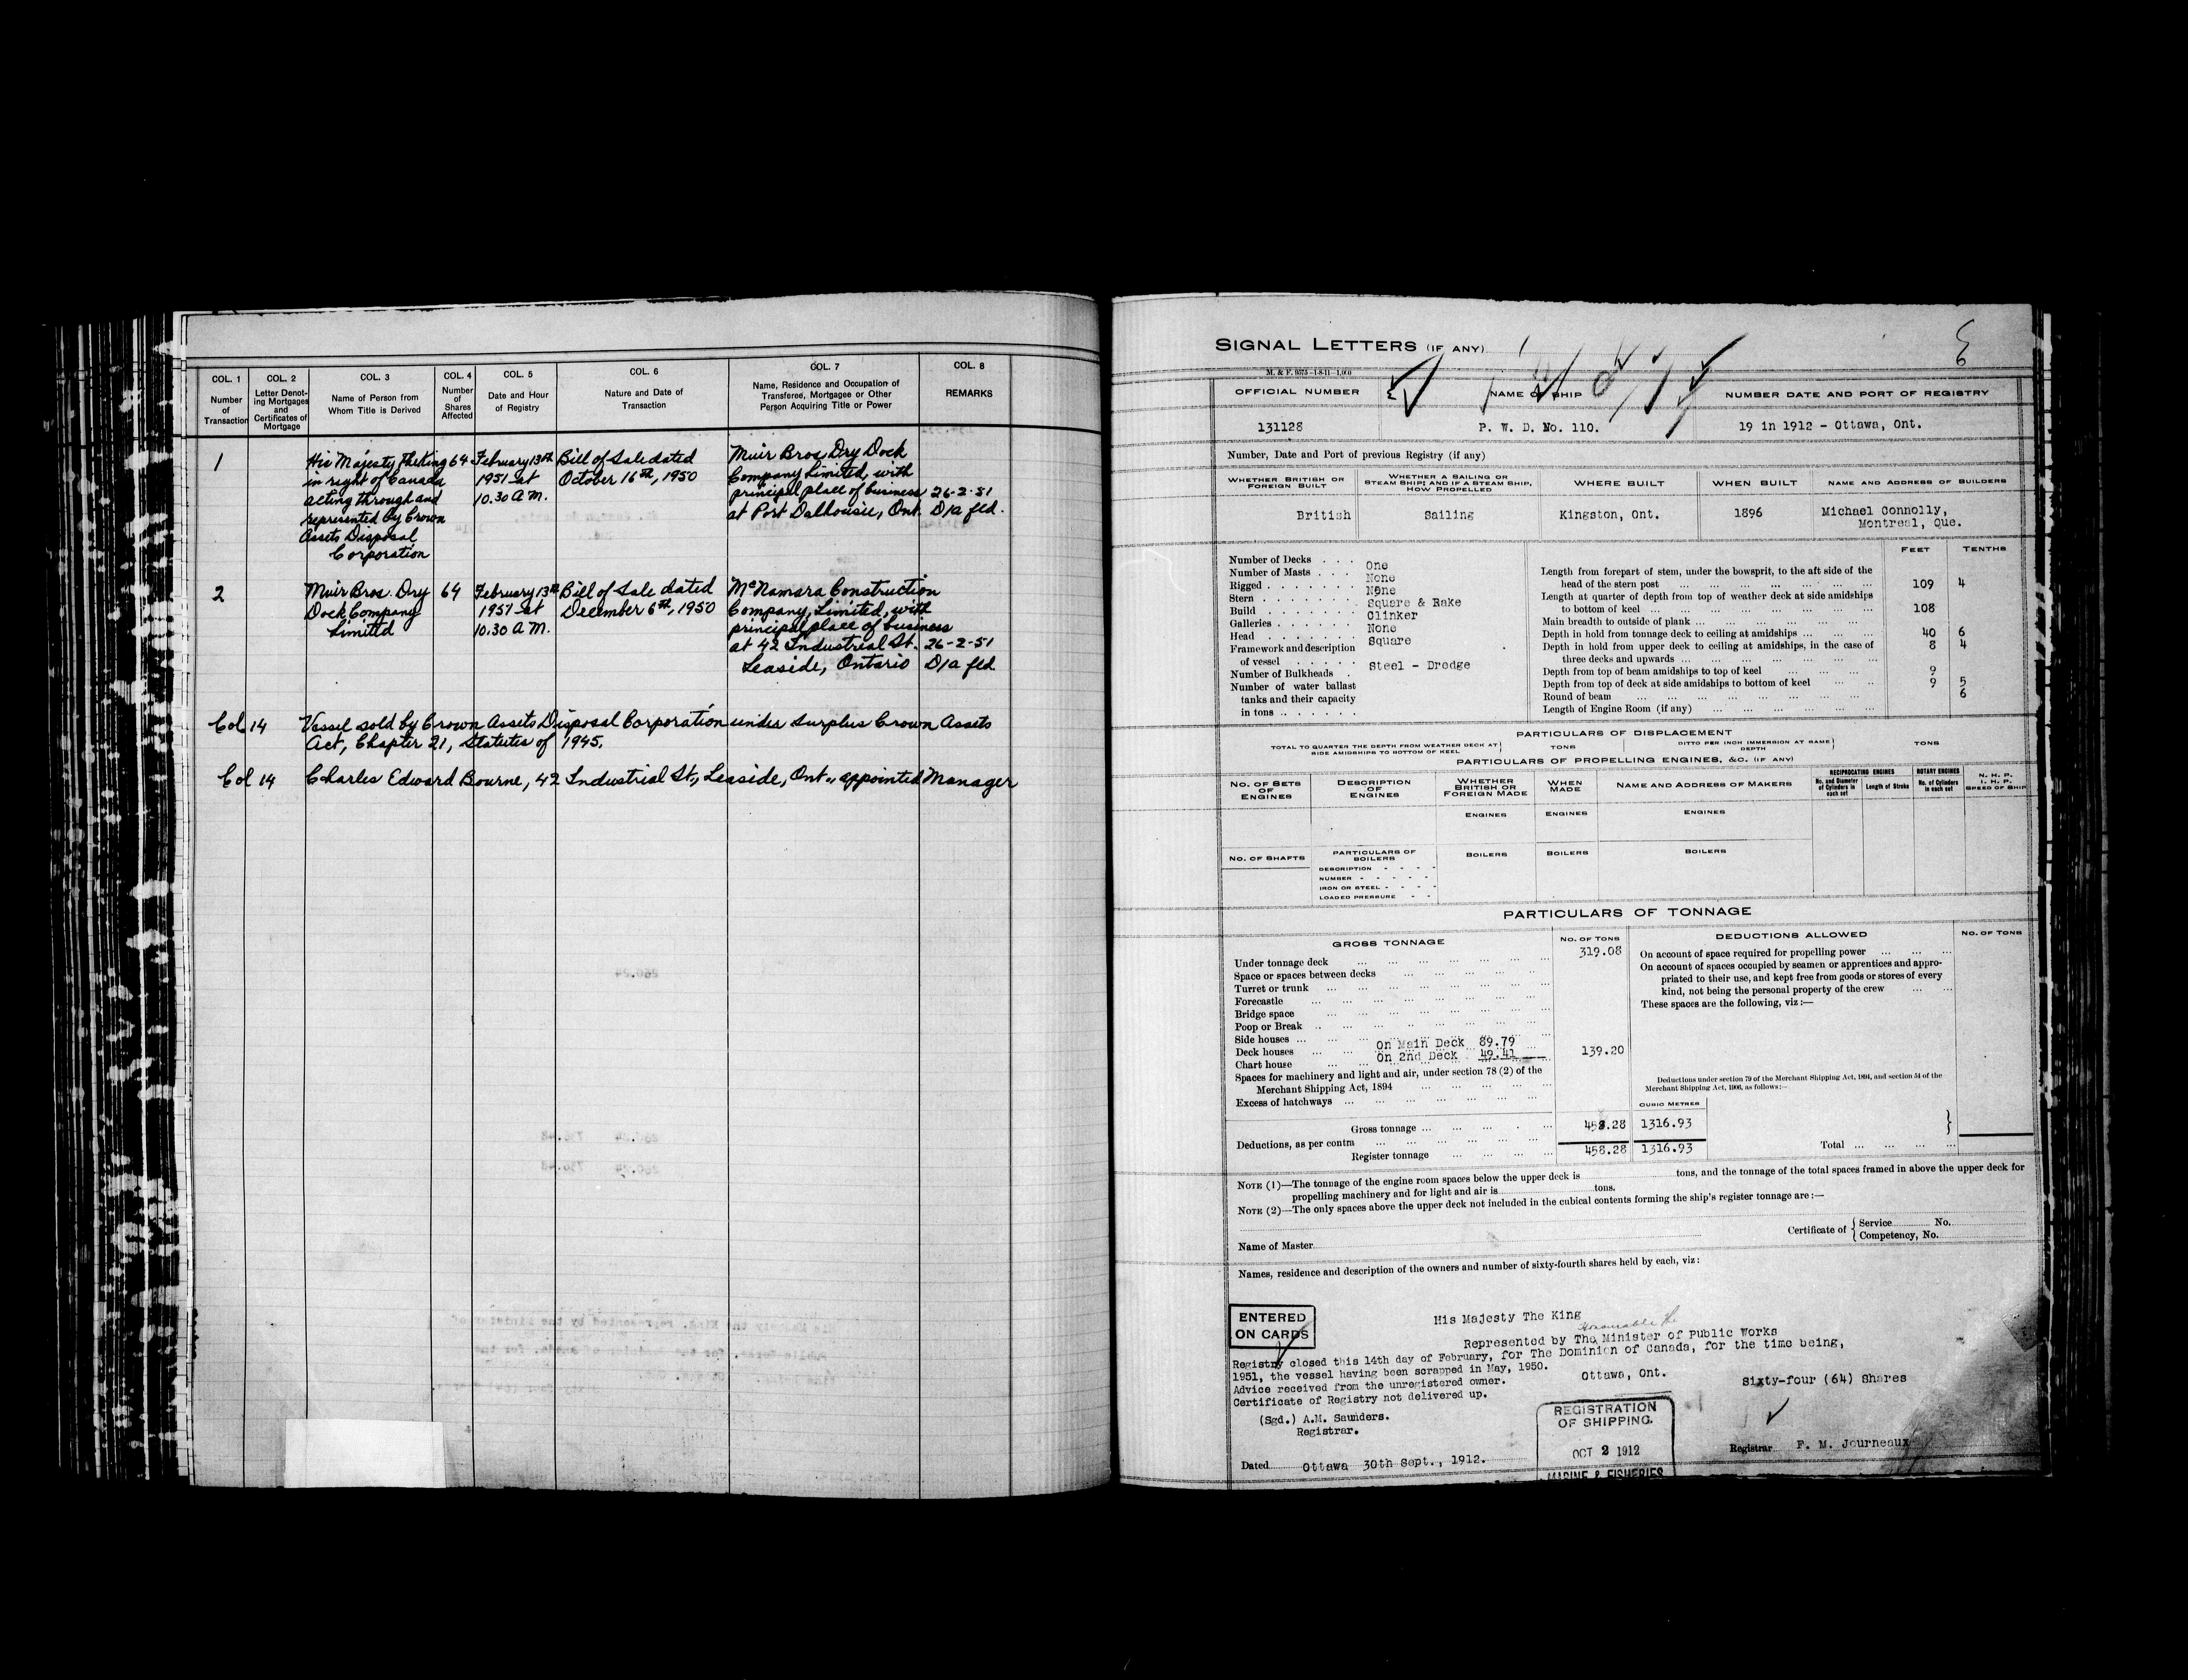 COL. 1 COL. 2 COL. 3 COL. 4 COL. 5 COL. 6 COL. 7 COL. 8
Number of Transaction
Letter Denoting Mortgages and Certificates of Mortgage
Name of Person from Whom Title is Derived
Number of Shares Affected
Date and Hour of Registry
Nature and Date of Transaction
Name, Residence and Occupation of Transferee, Mortgagee or Other Person Acquiring Title or Power
REMARKS
1 His Majesty the King 64 February 13th Bill of Sale dated Muir Bros. Dry Dock
in right of Canada 1951 at October 16th, 1950 Company Limited, with
acting through and 10.30 A.M. principal place of business 26-2-51
represented by Crown at Port Dalhousie, Ont. D/a fld.
Assets Disposal
Corporation
2 Muir Bros. Dry 64 February 13th Bill of Sale dated McNamara Construction
Dock Company 1951 at December 6th, 1950 Company, Limited, with
Limited 10.30 A.M. principal place of business
at 42 Industrial St. 26-2-51
Leaside, Ontario D/a fld.
Col 14 Vessel sold by Crown Assets Disposal Corporation under Surplus Crown Assets
Act, Chapter 21, Statutes of 1945.
Col 14 Charles Edward Bourne, 42 Industrial St., Leaside, Ont., appointed Manager
SIGNAL LETTERS (IF ANY)
M. & F. 9375-1-8-11-1,000
OFFICIAL NUMBER NAME OF SHIP NUMBER DATE AND PORT OF REGISTRY
131128 P. W. D. No. 110. 19 in 1912 - Ottawa, Ont.
Number, Date and Port of previous Registry (if any)
WHETHER BRITISH OR FOREIGN BUILT
WHETHER A SAILING OR STEAM SHIP; AND IF A STEAM SHIP, HOW PROPELLED
WHERE BUILT WHEN BUILT NAME AND ADDRESS OF BUILDERS
British Sailing Kingston, Ont. 1896 Michael Connolly,
Montreal, Que.
FEET TENTHS
Number of Decks . . . One
Number of Masts . . . None
Rigged . . . . . . . None
Stern . . . . . . . Square & Rake
Build . . . . . . . Clinker
Galleries . . . . . . None
Head . . . . . . . Square
Framework and description
of vessel . . . . . Steel - Dredge
Number of Bulkheads .
Number of water ballast
tanks and their capacity
in tons . . . . . .
Length from forepart of stem, under the bowsprit, to the aft side of the
head of the stern post 109 4
Length at quarter of depth from top of weather deck at side amidships
to bottom of keel 108
Main breadth to outside of plank 40 6
Depth in hold from tonnage deck to ceiling at amidships 8 4
Depth in hold from upper deck to ceiling at amidships, in the case of
three decks and upwards
Depth from top of beam amidships to top of keel 9
Depth from top of deck at side amidships to bottom of keel 9 5
Round of beam 6
Length of Engine Room (if any)
PARTICULARS OF DISPLACEMENT
TOTAL TO QUARTER THE DEPTH FROM WEATHER DECK AT SIDE AMIDSHIPS TO BOTTOM OF KEEL TONS DITTO PER INCH IMMERSION AT SAME DEPTH TONS
PARTICULARS OF PROPELLING ENGINES, &C. (IF ANY)
NO. OF SETS OF ENGINES
DESCRIPTION OF ENGINES
WHETHER BRITISH OR FOREIGN MADE
WHEN MADE
NAME AND ADDRESS OF MAKERS
RECIPROCATING ENGINES ROTARY ENGINES
No. and Diameter of Cylinders in each set
Length of Stroke
No. of Cylinders in each set
N. H. P.
I. H. P.
SPEED OF SHIP
ENGINES ENGINES ENGINES
NO. OF SHAFTS PARTICULARS OF BOILERS BOILERS BOILERS BOILERS
DESCRIPTION
NUMBER
IRON OR STEEL
LOADED PRESSURE
PARTICULARS OF TONNAGE
GROSS TONNAGE NO. OF TONS DEDUCTIONS ALLOWED NO. OF TONS
Under tonnage deck 319.08
Space or spaces between decks
Turret or trunk
Forecastle
Bridge space
Poop or Break
Side houses
Deck houses On Main Deck 89.79
Chart house On 2nd Deck 49.41 139.20
Spaces for machinery and light and air, under section 78 (2) of the
Merchant Shipping Act, 1894
Excess of hatchways
On account of space required for propelling power
On account of spaces occupied by seamen or apprentices and appro-
priated to their use, and kept free from goods or stores of every
kind, not being the personal property of the crew
These spaces are the following, viz:—
Deductions under section 79 of the Merchant Shipping Act, 1894, and section 54 of the
Merchant Shipping Act, 1906, as follows:—
CUBIC METRES
Gross tonnage 458.28 1316.93
Deductions, as per contra Total
Register tonnage 458.28 1316.93
NOTE (1)—The tonnage of the engine room spaces below the upper deck is tons, and the tonnage of the total spaces framed in above the upper deck for
propelling machinery and for light and air is tons.
NOTE (2)—The only spaces above the upper deck not included in the cubical contents forming the ship's register tonnage are:—
Name of Master Certificate of { Service No.
Competency, No.
Names, residence and description of the owners and number of sixty-fourth shares held by each, viz:
ENTERED
ON CARDS
His Majesty The King
Honourable the
Represented by The Minister of Public Works
for The Dominion of Canada, for the time being,
Ottawa, Ont. Sixty-four (64) Shares
Registry closed this 14th day of February,
1951, the vessel having been scrapped in May, 1950.
Advice received from the unregistered owner.
Certificate of Registry not delivered up.
(Sgd.) A.M. Saunders.
Registrar.
REGISTRATION
OF SHIPPING.
OCT 2 1912
MARINE & FISHERIES
Dated Ottawa 30th Sept., 1912.
Registrar F. M. Journeaux